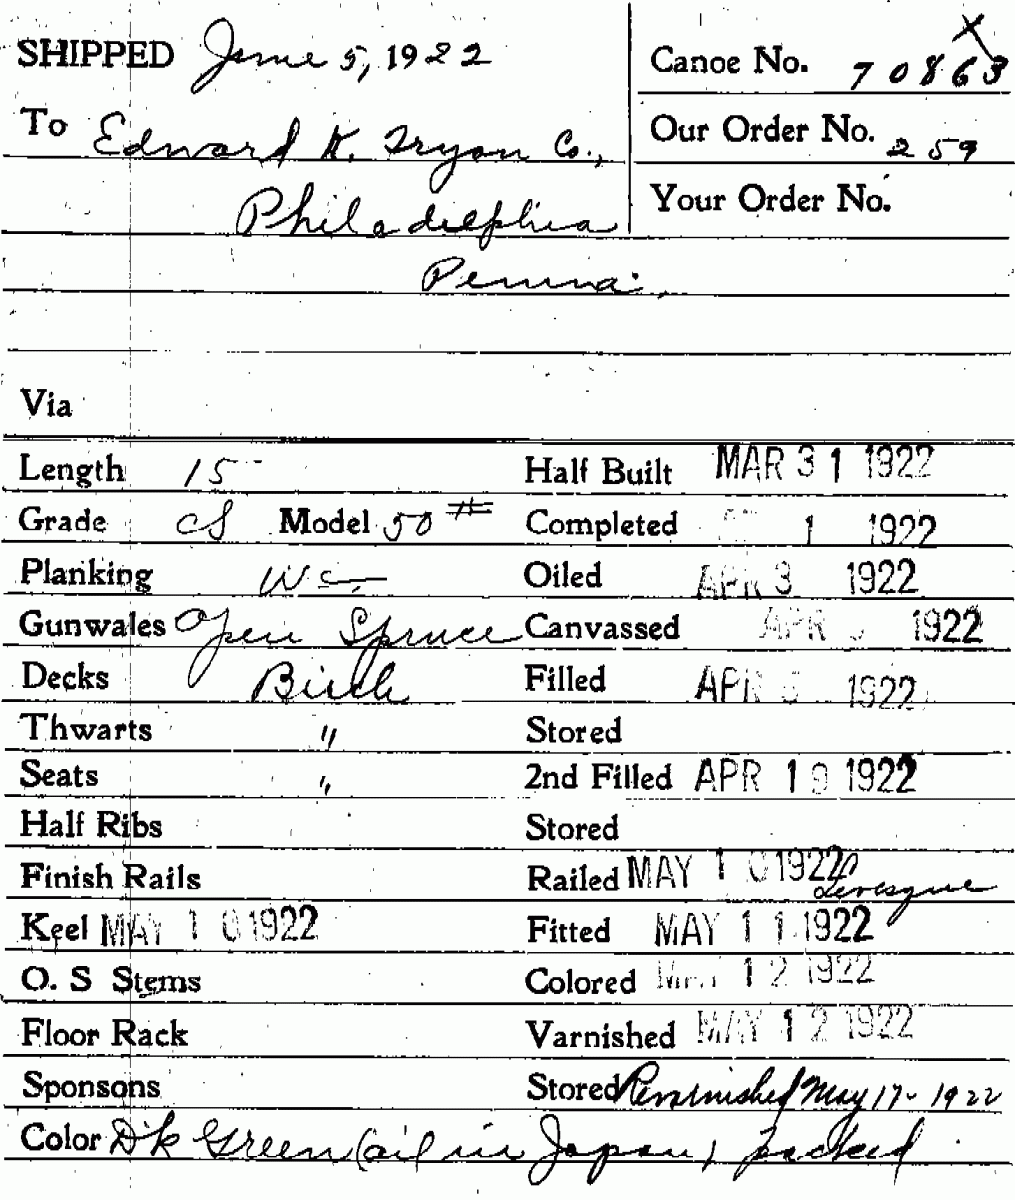 SHIPPED June 5, 1922
Canoe No. 70863
To Edward K. Tryon Co.,
Our Order No. 259
Philadelphia
Your Order No.
Penna.
Via
Length 15
Half Built MAR 31 1922
Grade CS Model 50#
Completed 1 1922
Planking WC
Oiled APR 3 1922
Gunwales Open Spruce
Canvassed APR 1922
Decks Birch
Filled APR 1922
Thwarts "
Stored
Seats "
2nd Filled APR 19 1922
Half Ribs
Stored
Finish Rails
Railed MAY 10 1922 Levesque
Keel MAY 10 1922
Fitted MAY 11 1922
O. S Stems
Colored MAY 12 1922
Floor Rack
Varnished MAY 12 1922
Sponsons
Stored Revarnished May 17-1922
Color Dk Green (oil in Japan) packed